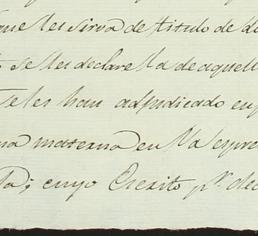 que les sirva de titulo de
se les declare la de aquell
les han adjudicado en
materna en la espre
cuyo Escrito pr. dec